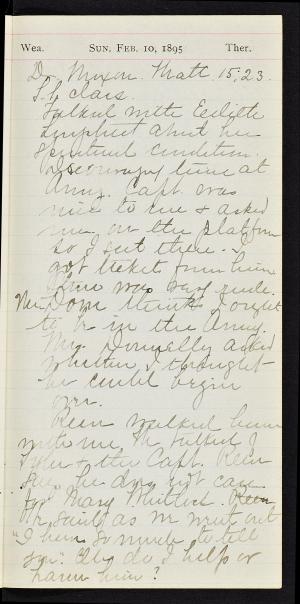 Wea. SUN. FEB. 10, 1895 Ther.
Dr. Nixon. Matt. 15; 23.
S. S. class.
Talked with Edith
about her
spiritual condition.
Discouraging time at
Army. Capt. was
nice to me & asked
me on the platform
so I sat there. I
got ticket from him
some was very rude.
Mr. Dow thinks I ought
to be in the Army.
Mr. Donnelly asked
whether I thought
he could begin
over.
Keen walked home
with me. We talked of
& the Capt. Keen
says he does not care
for Mary Keen
He said as we went out
"I have so much to tell
you". do I help or
harm him?